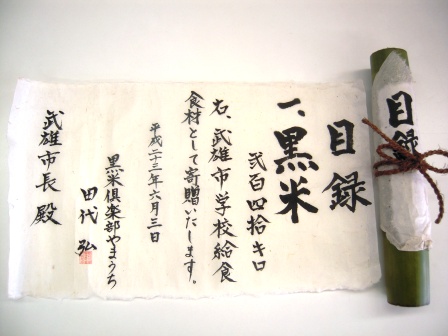 目録
目録
一、黒米
弐百四拾キロ
右、武雄市学校給食
食材として寄贈いたします。
平成二十三年六月三日
黒米倶楽部やまうち
田代弘
武雄市長殿